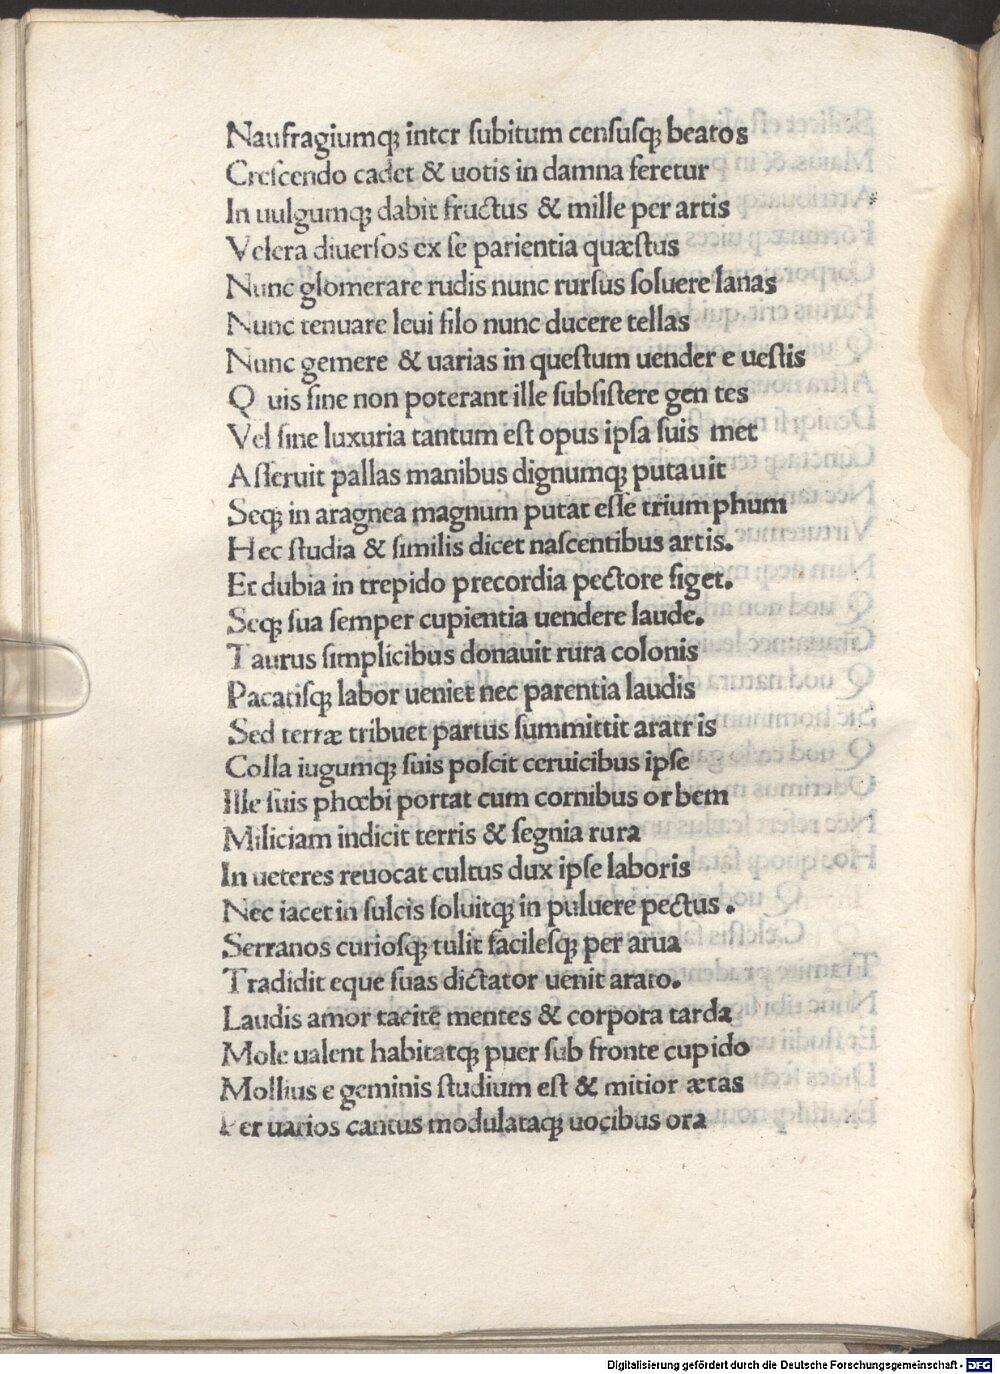 Naufragiumqꝫ inter ſubitum cenſuſqꝫ beatos
Creſcendo cadet & uotis in damna feretur
In uulgumqꝫ dabit fructus & mille per artis
Velera diuerſos ex ſe parientia quæſtus
Nunc glomerare rudis nunc rurſus ſoluere lanas
Nunc tenuare leui filo nunc ducere tellas
Nunc gemere & uarias in queſtum uender e ueſtis
Q uis ſine non poterant ille ſubſiſtere gen tes
Vel ſine luxuria tantum eſt opus ipſa ſuis met
Aſſeruit pallas manibus dignumqꝫ putauit
Seqꝫ in aragnea magnum putat eſſe trium phum
Hec ſtudia & ſimilis dicet naſcentibus artis.
Et dubia in trepido precordia pectore figet.
Seqꝫ ſua ſemper cupientia uendere laude.
Taurus ſimplicibus donauit rura colonis
Pacatiſqꝫ labor ueniet nec parentia laudis
Sed terræ tribuet partus ſummittit aratr is
Colla iugumqꝫ ſuis poſcit ceruicibus ipſe
Ille ſuis phœbi portat cum cornibus orbem
Miliciam indicit terris & ſegnia rura
In ueteres reuocat cultus dux ipſe laboris
Nec iacet in ſulcis ſoluitqꝫ in puluere pectus .
Serranos curioſqꝫ tulit facileſqꝫ per arua
Tradidit eque ſuas dictator uenit arato.
Laudis amor tacite mentes & corpora tarda
Mole ualent habitatqꝫ puer ſub fronte cupido
Mollius e geminis ſtudium eſt & mitior ætas
Per uarios cantus modulataqꝫ uocibus ora
Digitalisierung gefördert durch die Deutsche Forschungsgemeinschaft - DFG